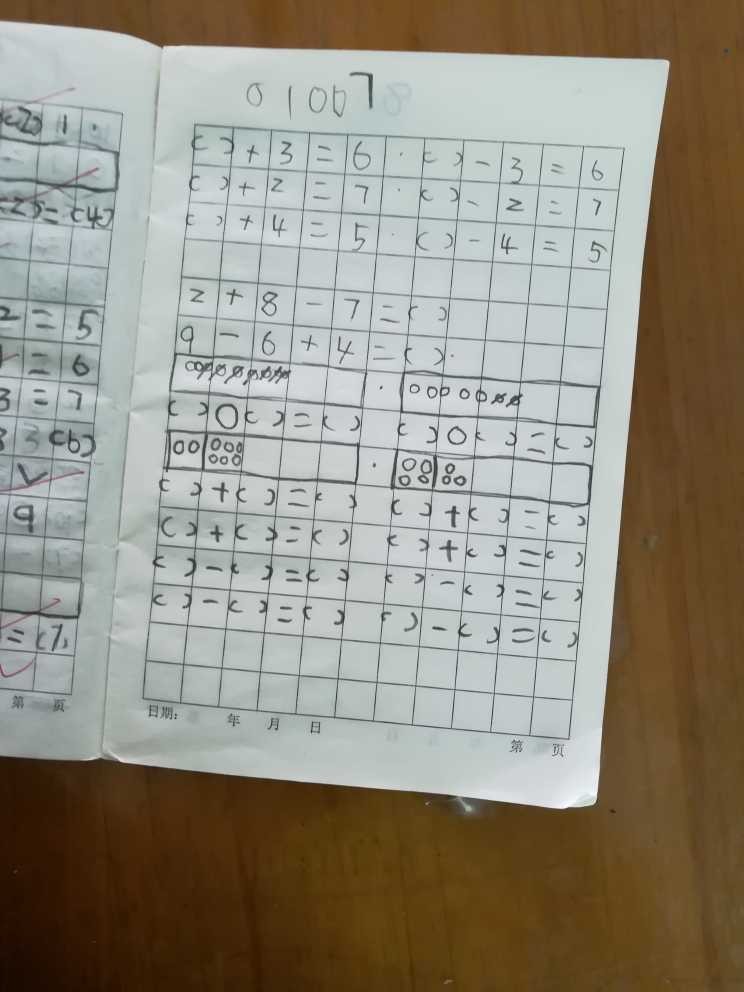 0 1 0 0 7
( ) + 3 = 6 · ( ) - 3 = 6
( ) + 2 = 7 · ( ) - 2 = 7
( ) + 4 = 5 · ( ) - 4 = 5
2 + 8 - 7 = ( )
9 - 6 + 4 = ( ) ·
( ) ○ ( ) = ( ) ( ) ○ ( ) = ( )
( ) + ( ) = ( ) ( ) + ( ) = ( )
( ) + ( ) = ( ) ( ) + ( ) = ( )
( ) - ( ) = ( ) ( ) - ( ) = ( )
( ) - ( ) = ( ) ( ) - ( ) = ( )
日期: 年 月 日
第 页
(2) 1 .
(2) = (4)
2 = 5
= 6
3 = 7
3 (6)
9
= (7)
第 页